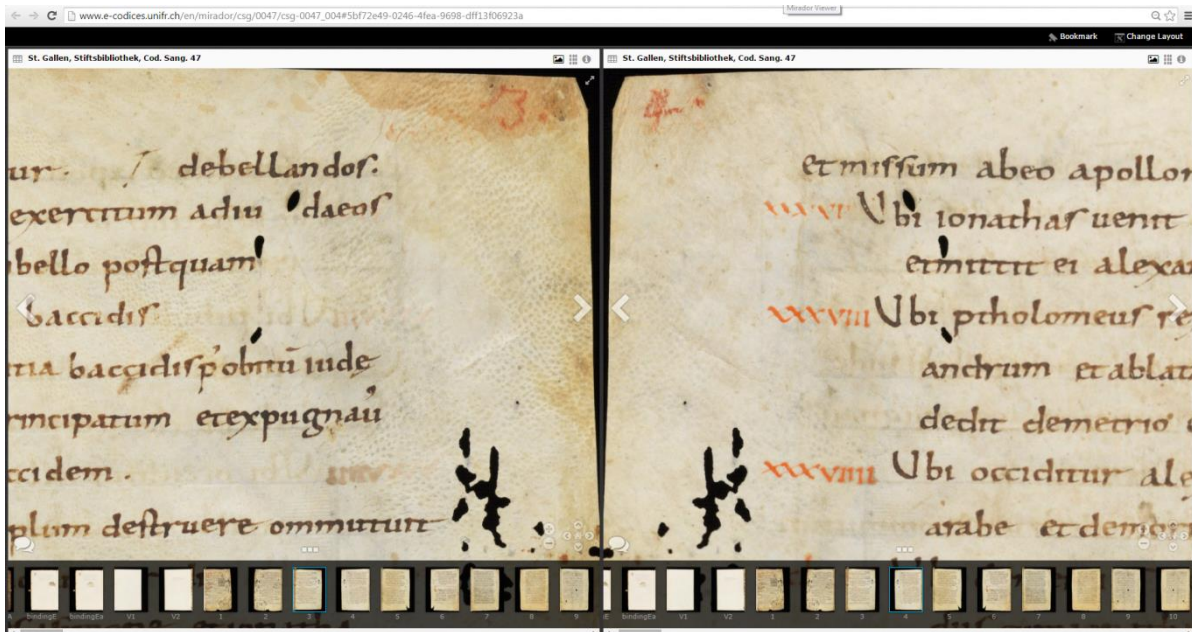 www.e-codices.unifr.ch/en/mirador/csg/0047/csg-0047_004#5bf72e49-0246-4fea-9698-dff13f06923a
Mirador Viewer
Bookmark Change Layout
St. Gallen, Stiftsbibliothek, Cod. Sang. 47
3.
ur. debellandos.
exercitum adiu daeos
bello postquam
baccidis
tia baccidis p obitū iude
rincipatum et expugnaū
ccidem.
plum destruere ommutuit
bindingE bindingEa V1 V2 1 2 3 4 5 6 7 8 9
St. Gallen, Stiftsbibliothek, Cod. Sang. 47
4.
et missum ab eo apollon
Ubi ionathas uenit
et mittit ei alexa
xxxviii Ubi ptholomeus re
andrum et ablat
dedit demetrio
xxxviiii Ubi occiditur ale
arabe et deme
bindingEa V1 V2 1 2 3 4 5 6 7 8 9 10